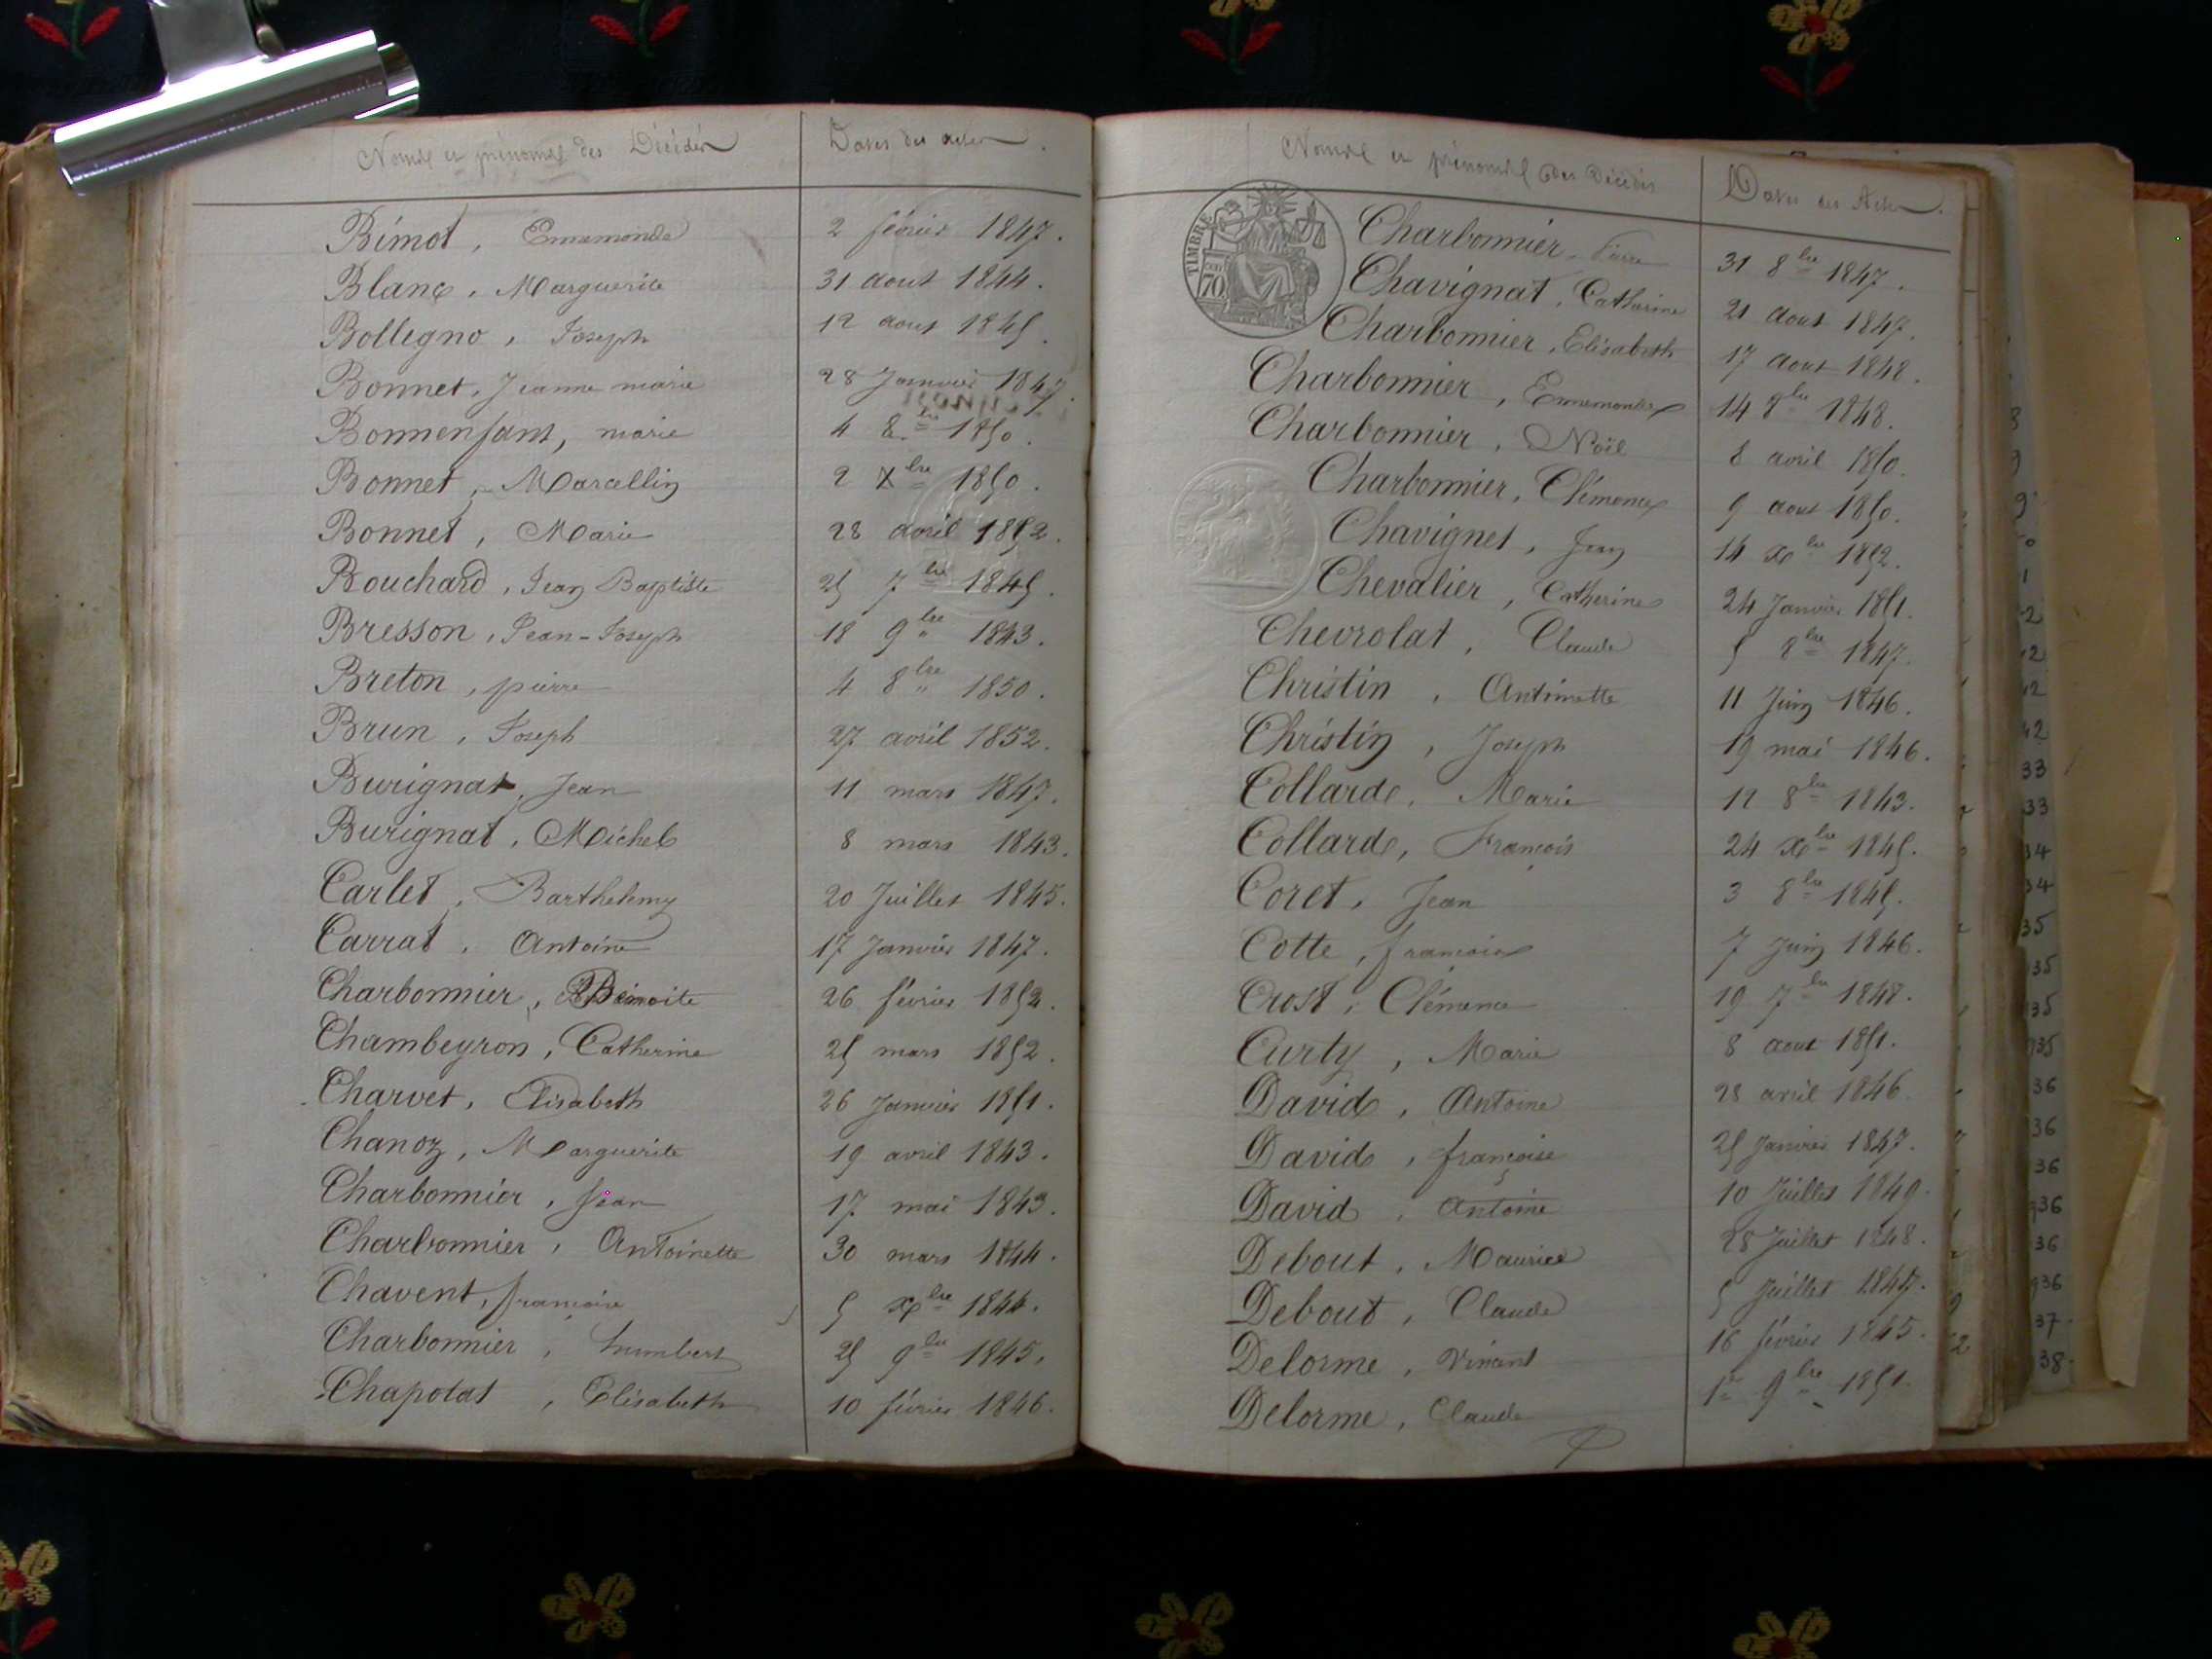 Noms et prénoms des Décédés Dates des actes.
Bémot, Ennemonde 2 février 1847.
Blanc, Marguerite 31 aout 1844.
Bollegno, Joseph 12 aout 1845.
Bonnet, Jeanne marie 28 Janvier 1847.
Bonnenfant, marie 4 8bre 1850.
Bonnet, Marcellin 2 Xbre 1850.
Bonnet, Marie 28 avril 1852.
Bouchard, Jean Baptiste 25 7bre 1845.
Bresson, Jean-Joseph 18 9bre 1843.
Breton, pierre 4 8bre 1850.
Brun, Joseph 27 avril 1852.
Burignat, Jean 11 mars 1847.
Burignat, Michel 8 mars 1843.
Carlet, Barthelemy 20 Juillet 1845.
Carrat, Antoine 17 Janvier 1847.
Charbonnier, Benoite 26 février 1852.
Chambeyron, Catherine 25 mars 1852.
Charvet, Elisabeth 26 Janvier 1851.
Chanoz, Marguerite 19 avril 1843.
Charbonnier, Jean 17 mai 1843.
Charbonnier, Antoinette 30 mars 1844.
Chavent, francoise 5 Xbre 1844.
Charbonnier, humbert 25 9bre 1845.
Chapotat, Elisabeth 10 février 1846.
Noms et prénoms des Décédés Dates des Actes.
TIMBRE
70
Charbonnier, Pierre 31 8bre 1847.
Chavignat, Catherine 21 aout 1847.
Charbonnier, Elisabeth 17 aout 1848.
Charbonnier, Ennemonde 14 8bre 1848.
Charbonnier, Noël 8 avril 1850.
Charbonnier, Clémence 9 aout 1850.
Chavignet, Jean 14 Xbre 1852.
Chevalier, Catherine 24 Janvier 1851.
Chevrolat, Claude 5 8bre 1847.
Christin, Antoinette 11 Juin 1846.
Christin, Joseph 19 mai 1846.
Collard, Marie 12 8bre 1843.
Collard, François 24 Xbre 1845.
Coret, Jean 3 8bre 1845.
Cotte, francoise 7 Juin 1846.
Crost, Clémence 19 7bre 1848.
Curty, Marie 8 aout 1851.
David, Antoine 28 avril 1846.
David, françoise 25 Janvier 1847.
David, Antoine 10 Juillet 1849.
Debout, Maurice 28 Juillet 1848.
Debout, Claude 5 Juillet 1847.
Delorme, Vincent 16 février 1845.
Delorme, Claude 1er 9bre 1851.